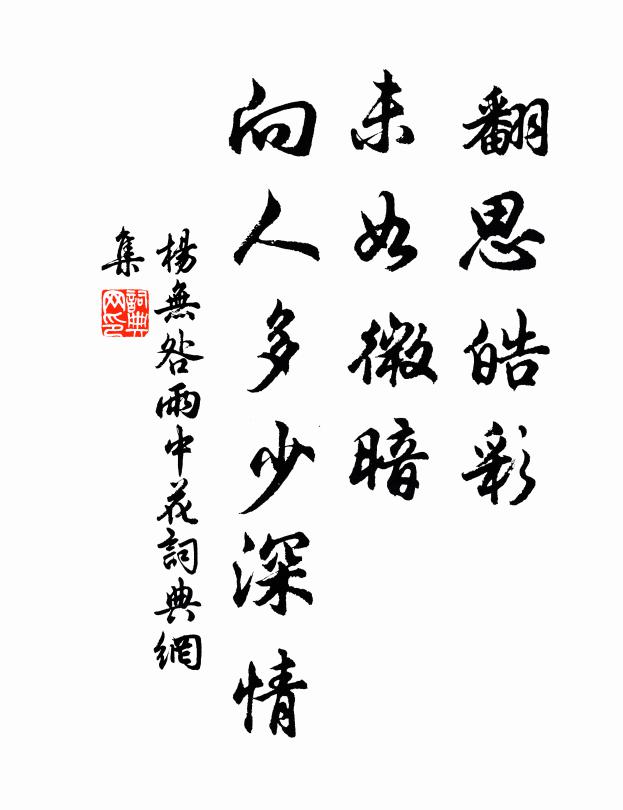 翻思皓彩
未如微暗
向人多少深情
楊無咎雨中花詞典網
集
詞典网印